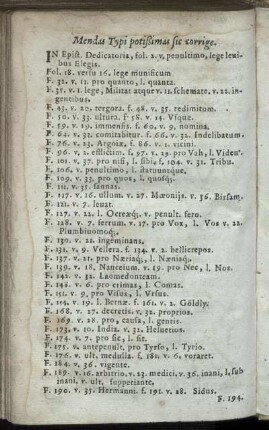 Mendas Typi potissimas sic corrige.
IN Epist. Dedicatoria, fol. 2. v. penultimo, lege levi-
bus filegis.
Fol. 18. versu 16. lege munificum
F. 32. v. 11. pro quanto, l. quanta.
F. 35. v. 1. lege, Militat atque v. 11. schemate, v. 22. in-
gentibus.
F. 43. v. 20. tergora. f. 48. v. 35. redimitum.
F. 50. v. 33. ultora. f. 58. v. 14. Vsque.
F. 59. v. 19. immensis. f. 60. v. 9. nomina,
F. 64. v. 33. comitabitur. f. 66. v. 32. Indelibatum.
F. 76. v. 23. Argoia. f. 86. v. 1. vicini.
F. 96. v. 2. effictim. f. 97. v. 29. pro Vah, l. Viden'.
F. 101. v. 37. pro nisi, l. sibi, f. 104. v. 31. Tribu.
F. 106. v. penultimo, l. statuuntque.
F. 109. v. 33. pro quox, l. quosq;.
F. 111. v. 35. sannas.
F. 117. v. 16. ullum. v. 27. Mœonijs. v. 36. Birsam.
F. 121. v. 7. levat.
F. 127. v. 22. l. v. penult. fero.
F. 128. v. 7. ferrum. v. 17. pro Vox, l. Vos v. 22.
Plumbiuomoq;.
F. 130. v. 21. ingeminans.
F. 131. v. 9. Vellera. f. 134. v. 2. bellicrepos.
F. 137. v. 21. pro Næriaq;, l. Næniaq;.
F. 139. v. 18. Nanceium. v. 19. pro Nec, l. Nos.
F. 142. v. 32. Laomedonteam.
F. 148. v. 6. pro crimas, l. Comas.
F. 151. v. 9. pro Visus, l. Vrsus.
F. 154. v. 19. l. Bernæ. f. 161. v. 2. Göldly.
F. 168. v. 27. decretis. v. 32. proprios.
F. 169. v. 28. pro, causa, l. gentis.
F. 173. v. 10. India. v. 32. Helvetios.
F. 174. v. 7. pro sic, l. sit.
F. 175. v. antepenult, pro Tyrso, l. Tyrio.
F. 176. v. ult. medulla. f. 181. v. 6. voraret.
F. 184. v. 36. vigente.
F. 189. v. 16. arbitrio. v. 23. medici, v. 36. inani, l. sub
inani, v. ult. suppetiante.
F. 196. v. 33. Hermanni. f. 191. v. 28. Sidus.
F. 194.